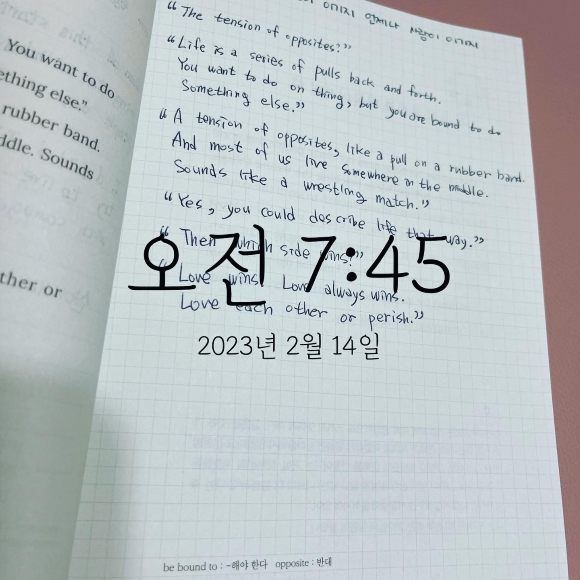 You want to do
ething else."
rubber band.
ddle. Sounds
ther or
이 이기지 언제나 사랑이 이기지
“The tension of opposites?”
“Life is a series of pulls back and forth.
You want to do on thing, but you are bound to do
Something else.”
“A tension of opposites, like a pull on a rubber band.
And most of us live somewhere in the middle.
Sounds like a wrestling match.”
“Yes, you could describe life that way.”
“Then which side wins?”
“Love wins. Love always wins.
Love each other or perish.”
오전 7:45
2023년 2월 14일
be bound to : ~해야 한다 opposite : 반대